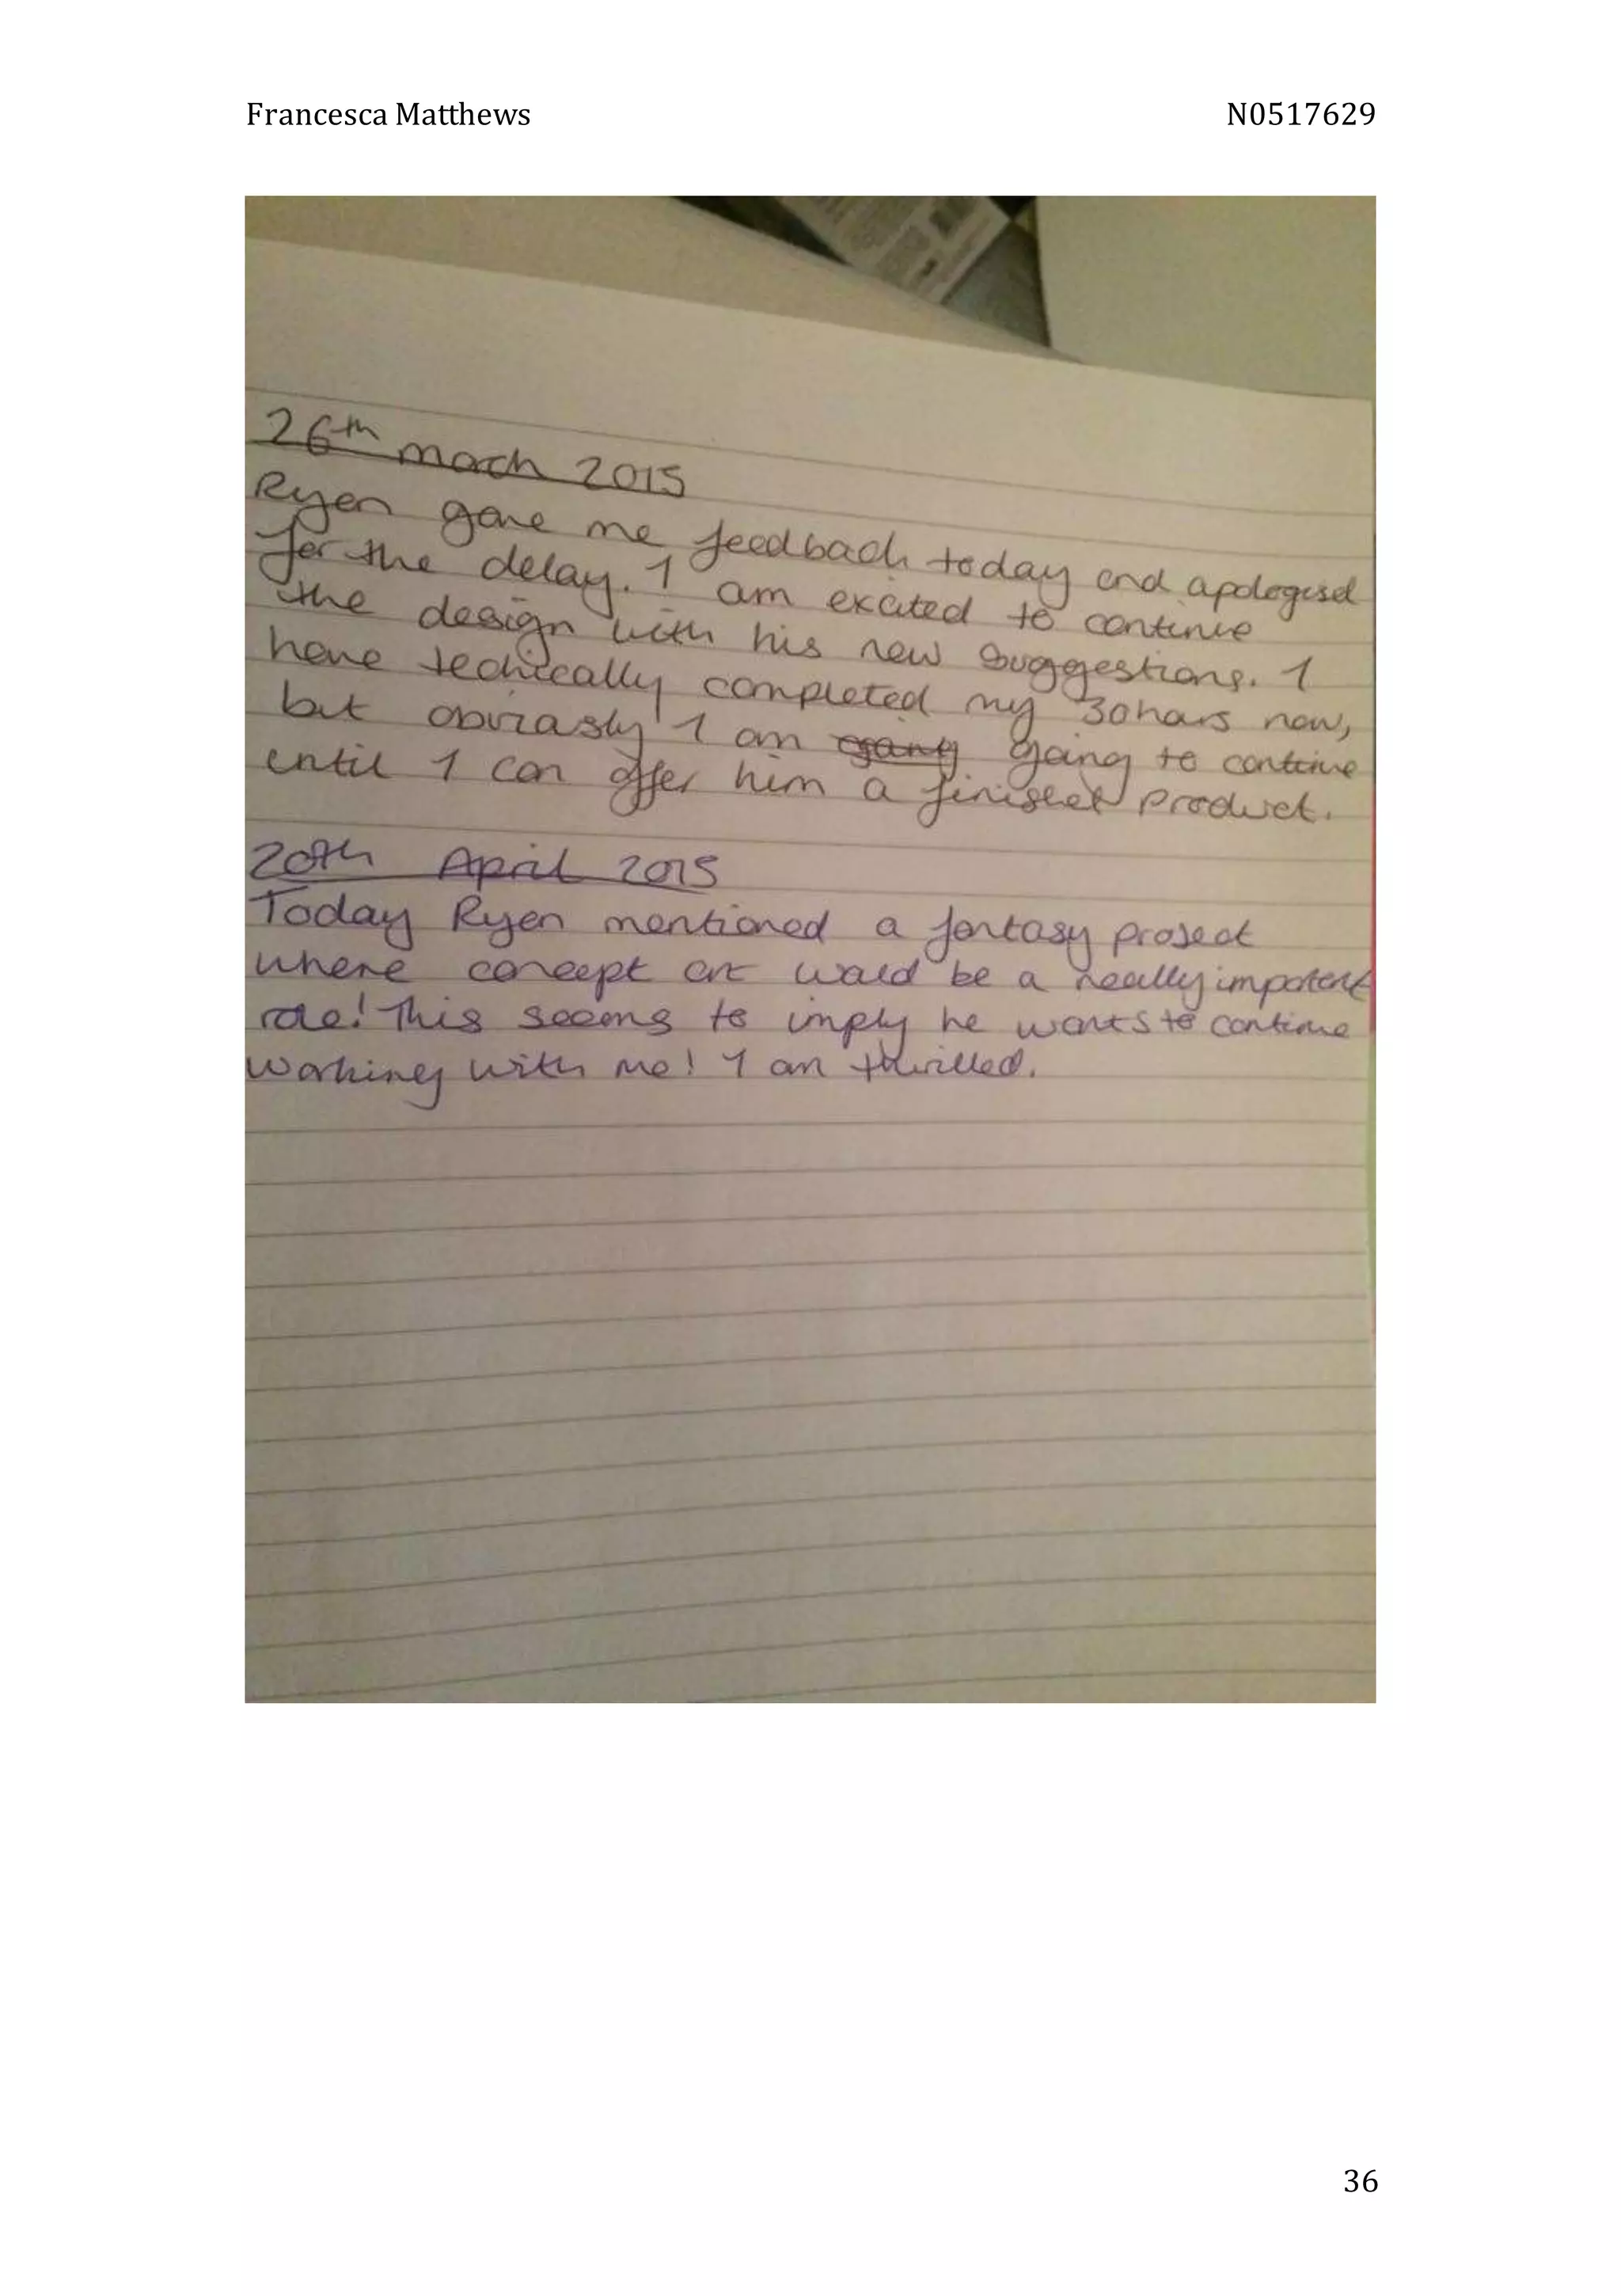 Francesca Matthews N0517629
26th march 2015
Ryen gave me feedback today and apologised
for the delay. I am excited to continue
the design with his new suggestions. I
have techically completed my 30hours now,
but obviously I am going to continue
until I can offer him a finished product.
20th April 2015
Today Ryen mentioned a fantasy project
where concept art would be a really important
role! This seems to imply he wants to continue
working with me! I am thrilled.
36